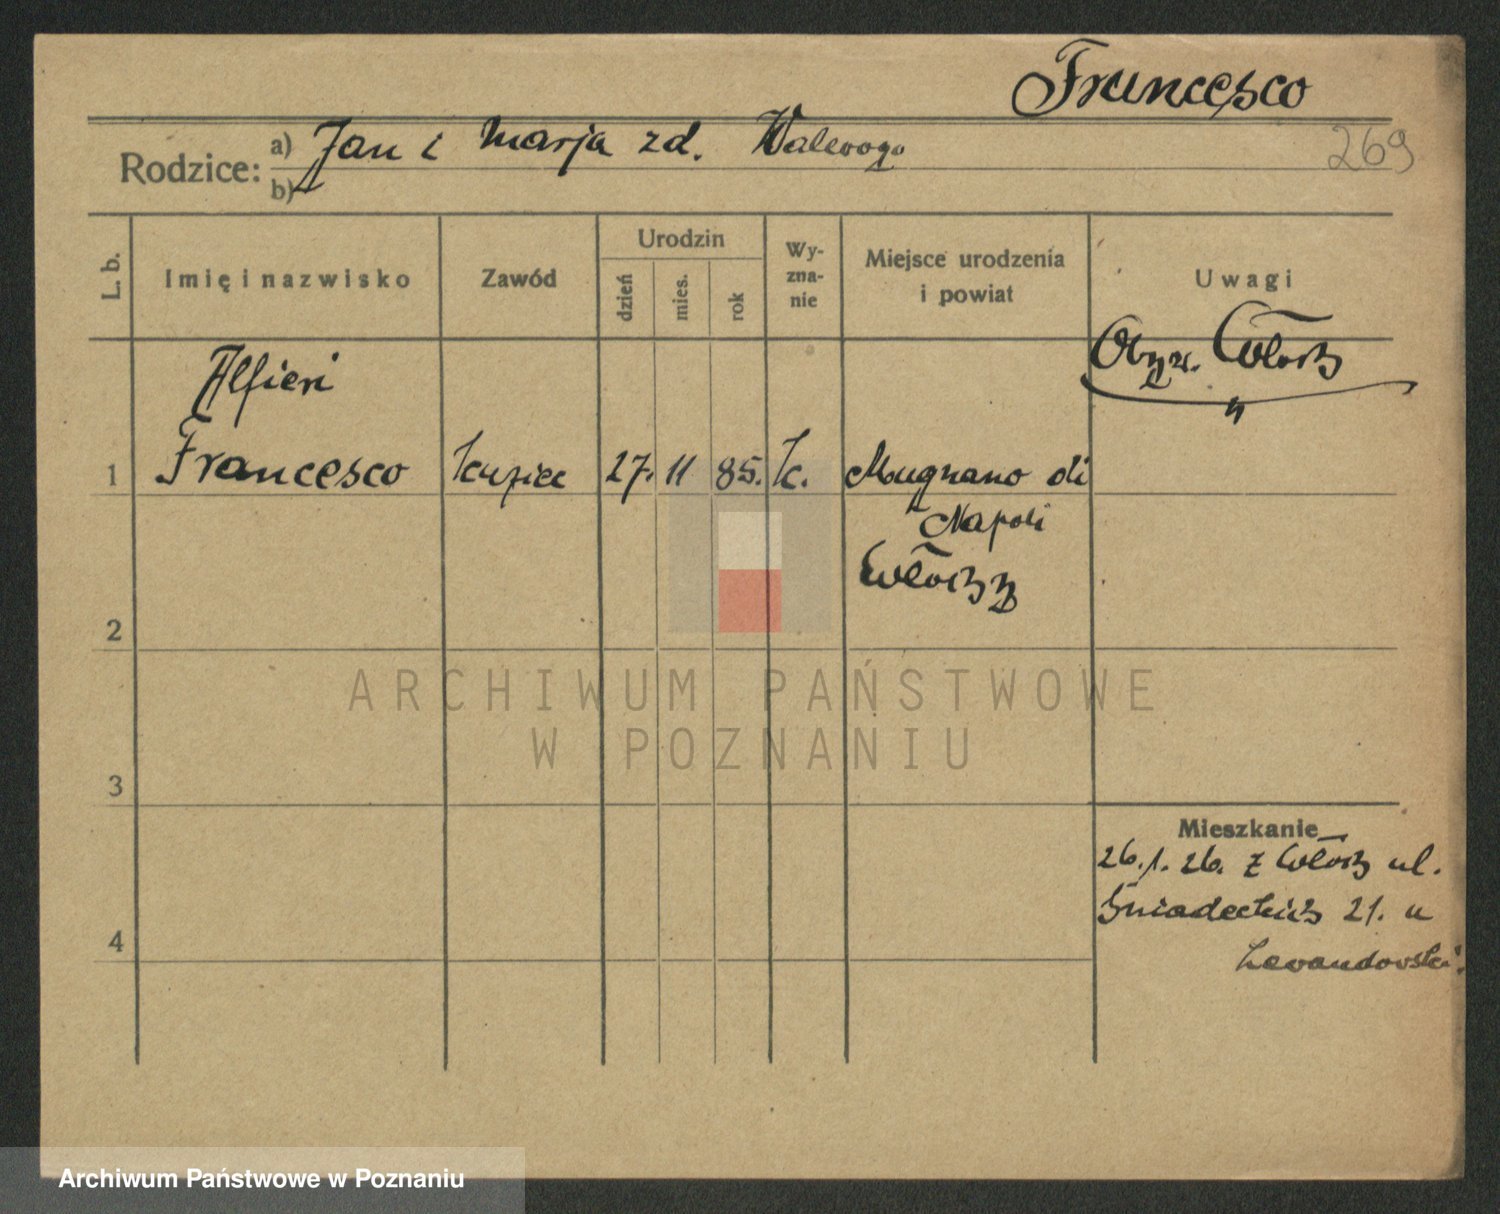 Francesco
269
Rodzice: a) Jan i Marja zd.
b)
L. b.
Imię i nazwisko
Zawód
Urodzin
dzień
mies.
rok
Wy-
zna-
nie
Miejsce urodzenia
i powiat
Uwagi
Alfieri
Obyw. Włoch
1 Francesco kupiec 27. 11 85. k. Mugnano di
Napoli
Włochy
2
3
4
Mieszkanie
26.1.26. z Włoch ul.
Śniadeckich 21. u
Lewandowski.
ARCHIWUM PAŃSTWOWE
W POZNANIU
Archiwum Państwowe w Poznaniu